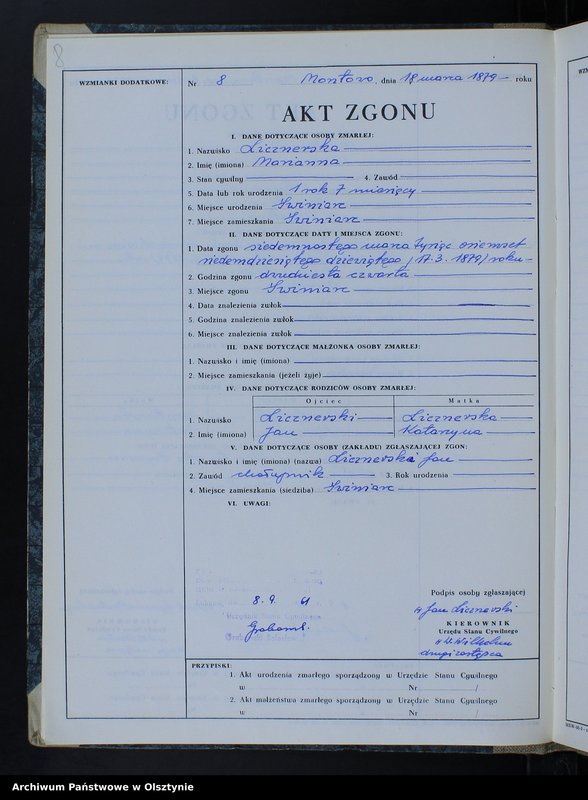 8
WZMIANKI DODATKOWE:
Nr 8 Montowo, dnia 18 marca 1879 roku
AKT ZGONU
I. DANE DOTYCZĄCE OSOBY ZMARŁEJ:
1. Nazwisko Licznerska
2. Imię (imiona) Marianna
3. Stan cywilny 4. Zawód
5. Data lub rok urodzenia 1 rok 7 miesięcy
6. Miejsce urodzenia Swiniarc
7. Miejsce zamieszkania Swiniarc
II. DANE DOTYCZĄCE DATY I MIEJSCA ZGONU:
1. Data zgonu siedemnastego marca tysiąc osiemset
siedemdziesiątego dziewiątego /17.3.1879/ roku
2. Godzina zgonu dwudziesta czwarta
3. Miejsce zgonu Swiniarc
4. Data znalezienia zwłok
5. Godzina znalezienia zwłok
6. Miejsce znalezienia zwłok
III. DANE DOTYCZĄCE MAŁŻONKA OSOBY ZMARŁEJ:
1. Nazwisko i imię (imiona)
2. Miejsce zamieszkania (jeżeli żyje)
IV. DANE DOTYCZĄCE RODZICÓW OSOBY ZMARŁEJ:
Ojciec Matka
1. Nazwisko Licznerski Licznerska
2. Imię (imiona) Jan Katarzyna
V. DANE DOTYCZĄCE OSOBY (ZAKŁADU) ZGŁASZAJĄCEJ ZGON:
1. Nazwisko i imię (imiona) (nazwa) Licznerski Jan
2. Zawód chałupnik 3. Rok urodzenia
4. Miejsce zamieszkania (siedziba) Swiniarc
VI. UWAGI:
8. 9. 61
Podpis osoby zgłaszającej
Jan Licznerski
KIEROWNIK
Urzędu Stanu Cywilnego
drugi zastępca
PRZYPISKI:
1. Akt urodzenia zmarłego sporządzony w Urzędzie Stanu Cywilnego
w Nr /
2. Akt małżeństwa zmarłego sporządzony w Urzędzie Stanu Cywilnego
w Nr /
Archiwum Państwowe w Olsztynie